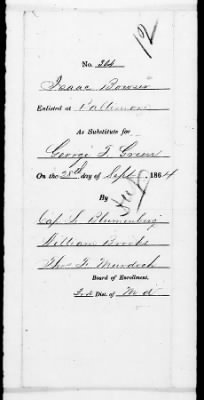 12
No. 364
Isaac Bowser
Enlisted at Baltimore
As Substitute for
George T. Green
On the 28th day of Sept. 1864
By
Cap. L. Blumenberg
William Brooks
Thos. F. Murdoch
Board of Enrollment.
Dist. of Md